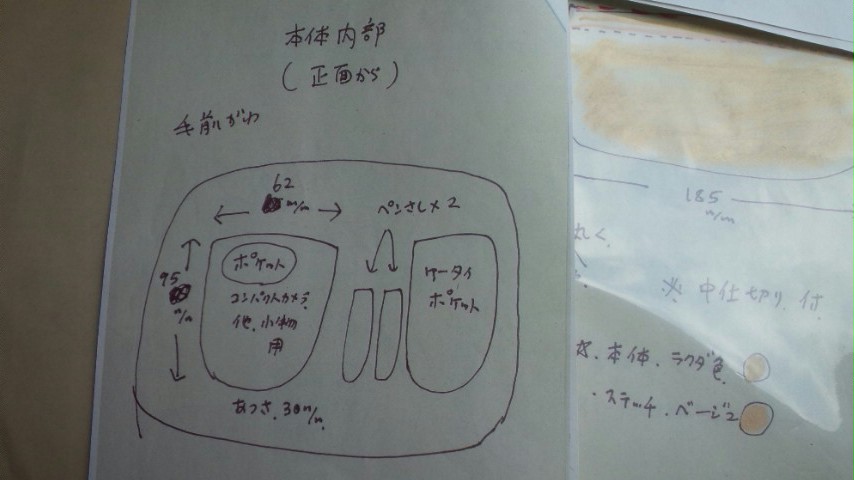 本体内部
(正面から)
手前がわ
62
m/m
ペンさし×2
95
m/m
ポケット
コンパクトカメラ
他、小物
用
ケータイ
ポケット
あつさ、30m/m
185
m/m
丸く、
※ 中仕切り、付
本体、ラクダ色
・ステッチ、ベージュ